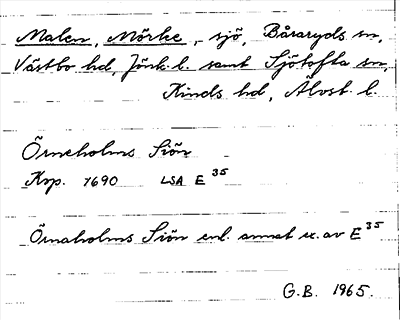 Malen, Mörke, sjö, Båraryds sn,
Västbo hd, Jönk. l. samt Sjötofta sn,
Kinds hd, Älvsb. l.
Örneholms Siön
Krp. 1690 LSA E 35
Örnaholms Siön enl. annat ex. av E 35
G.B. 1965.